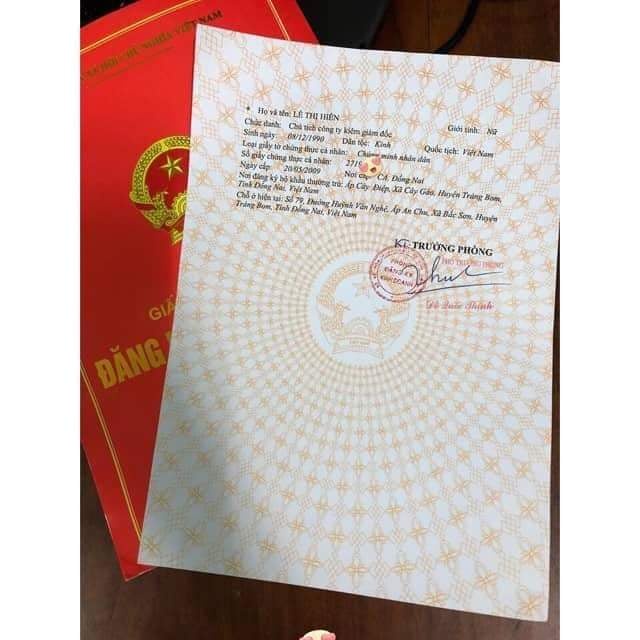 HỘI CHỦ NGHĨA VIỆT NAM
GIẤ
ĐĂNG
* Họ và tên: LÊ THỊ HIÊN Giới tính: Nữ
Chức danh: Chủ tịch công ty kiêm giám đốc
Sinh ngày: 08/12/1990 Dân tộc: Kinh Quốc tịch: Việt Nam
Loại giấy tờ chứng thực cá nhân: Chứng minh nhân dân
Số giấy chứng thực cá nhân: 2719
Ngày cấp: 20/05/2009 Nơi cấp: CA. Đồng Nai
Nơi đăng ký hộ khẩu thường trú: Ấp Cây Điệp, Xã Cây Gáo, Huyện Trảng Bom,
Tỉnh Đồng Nai, Việt Nam
Chỗ ở hiện tại: Số 79, Đường Huỳnh Văn Nghệ, Ấp An Chu, Xã Bắc Sơn, Huyện
Trảng Bom, Tỉnh Đồng Nai, Việt Nam
KT. TRƯỞNG PHÒNG
PHÓ TRƯỞNG PHÒNG
PHÒNG
ĐĂNG KÝ
KINH DOANH
Lê Quốc Thịnh